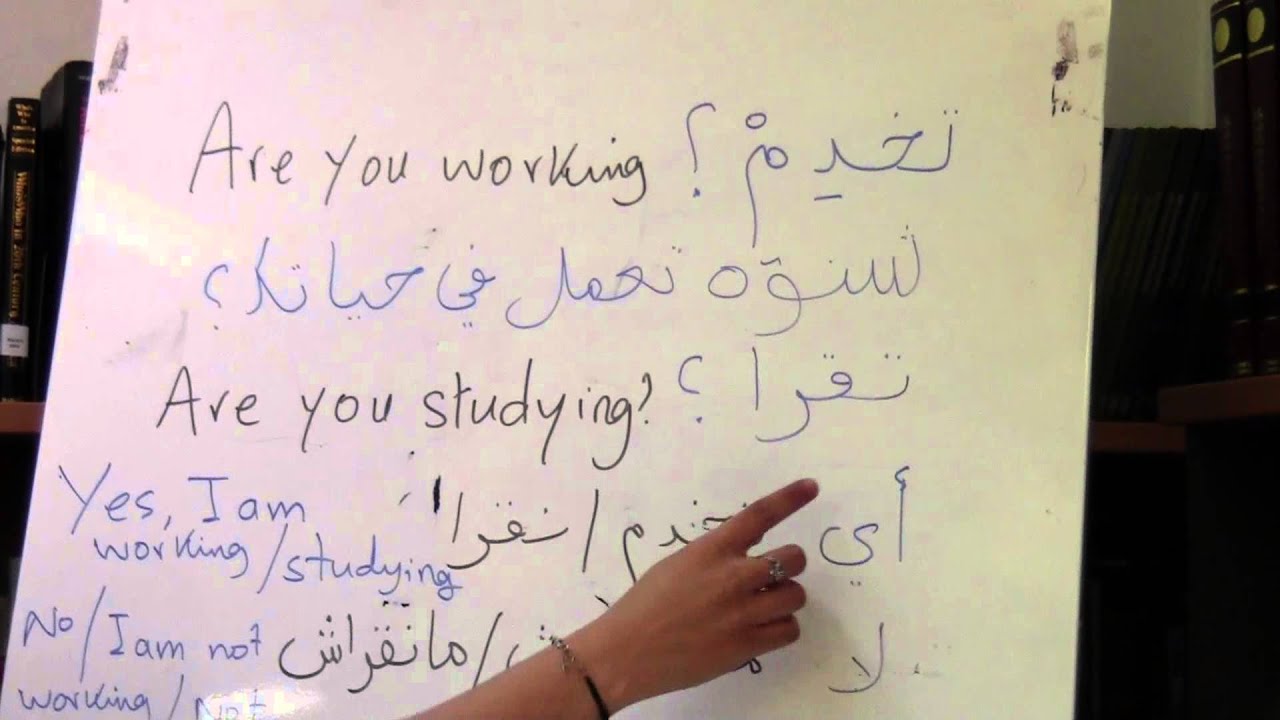 Are you working ؟ تخدِمْ
شنوّه تعمل في حياتك؟
Are you studying? تقرا ؟
Yes, I am working/studying أي نخدم/نقرا
No/I am not working/Not لا /مانقراش